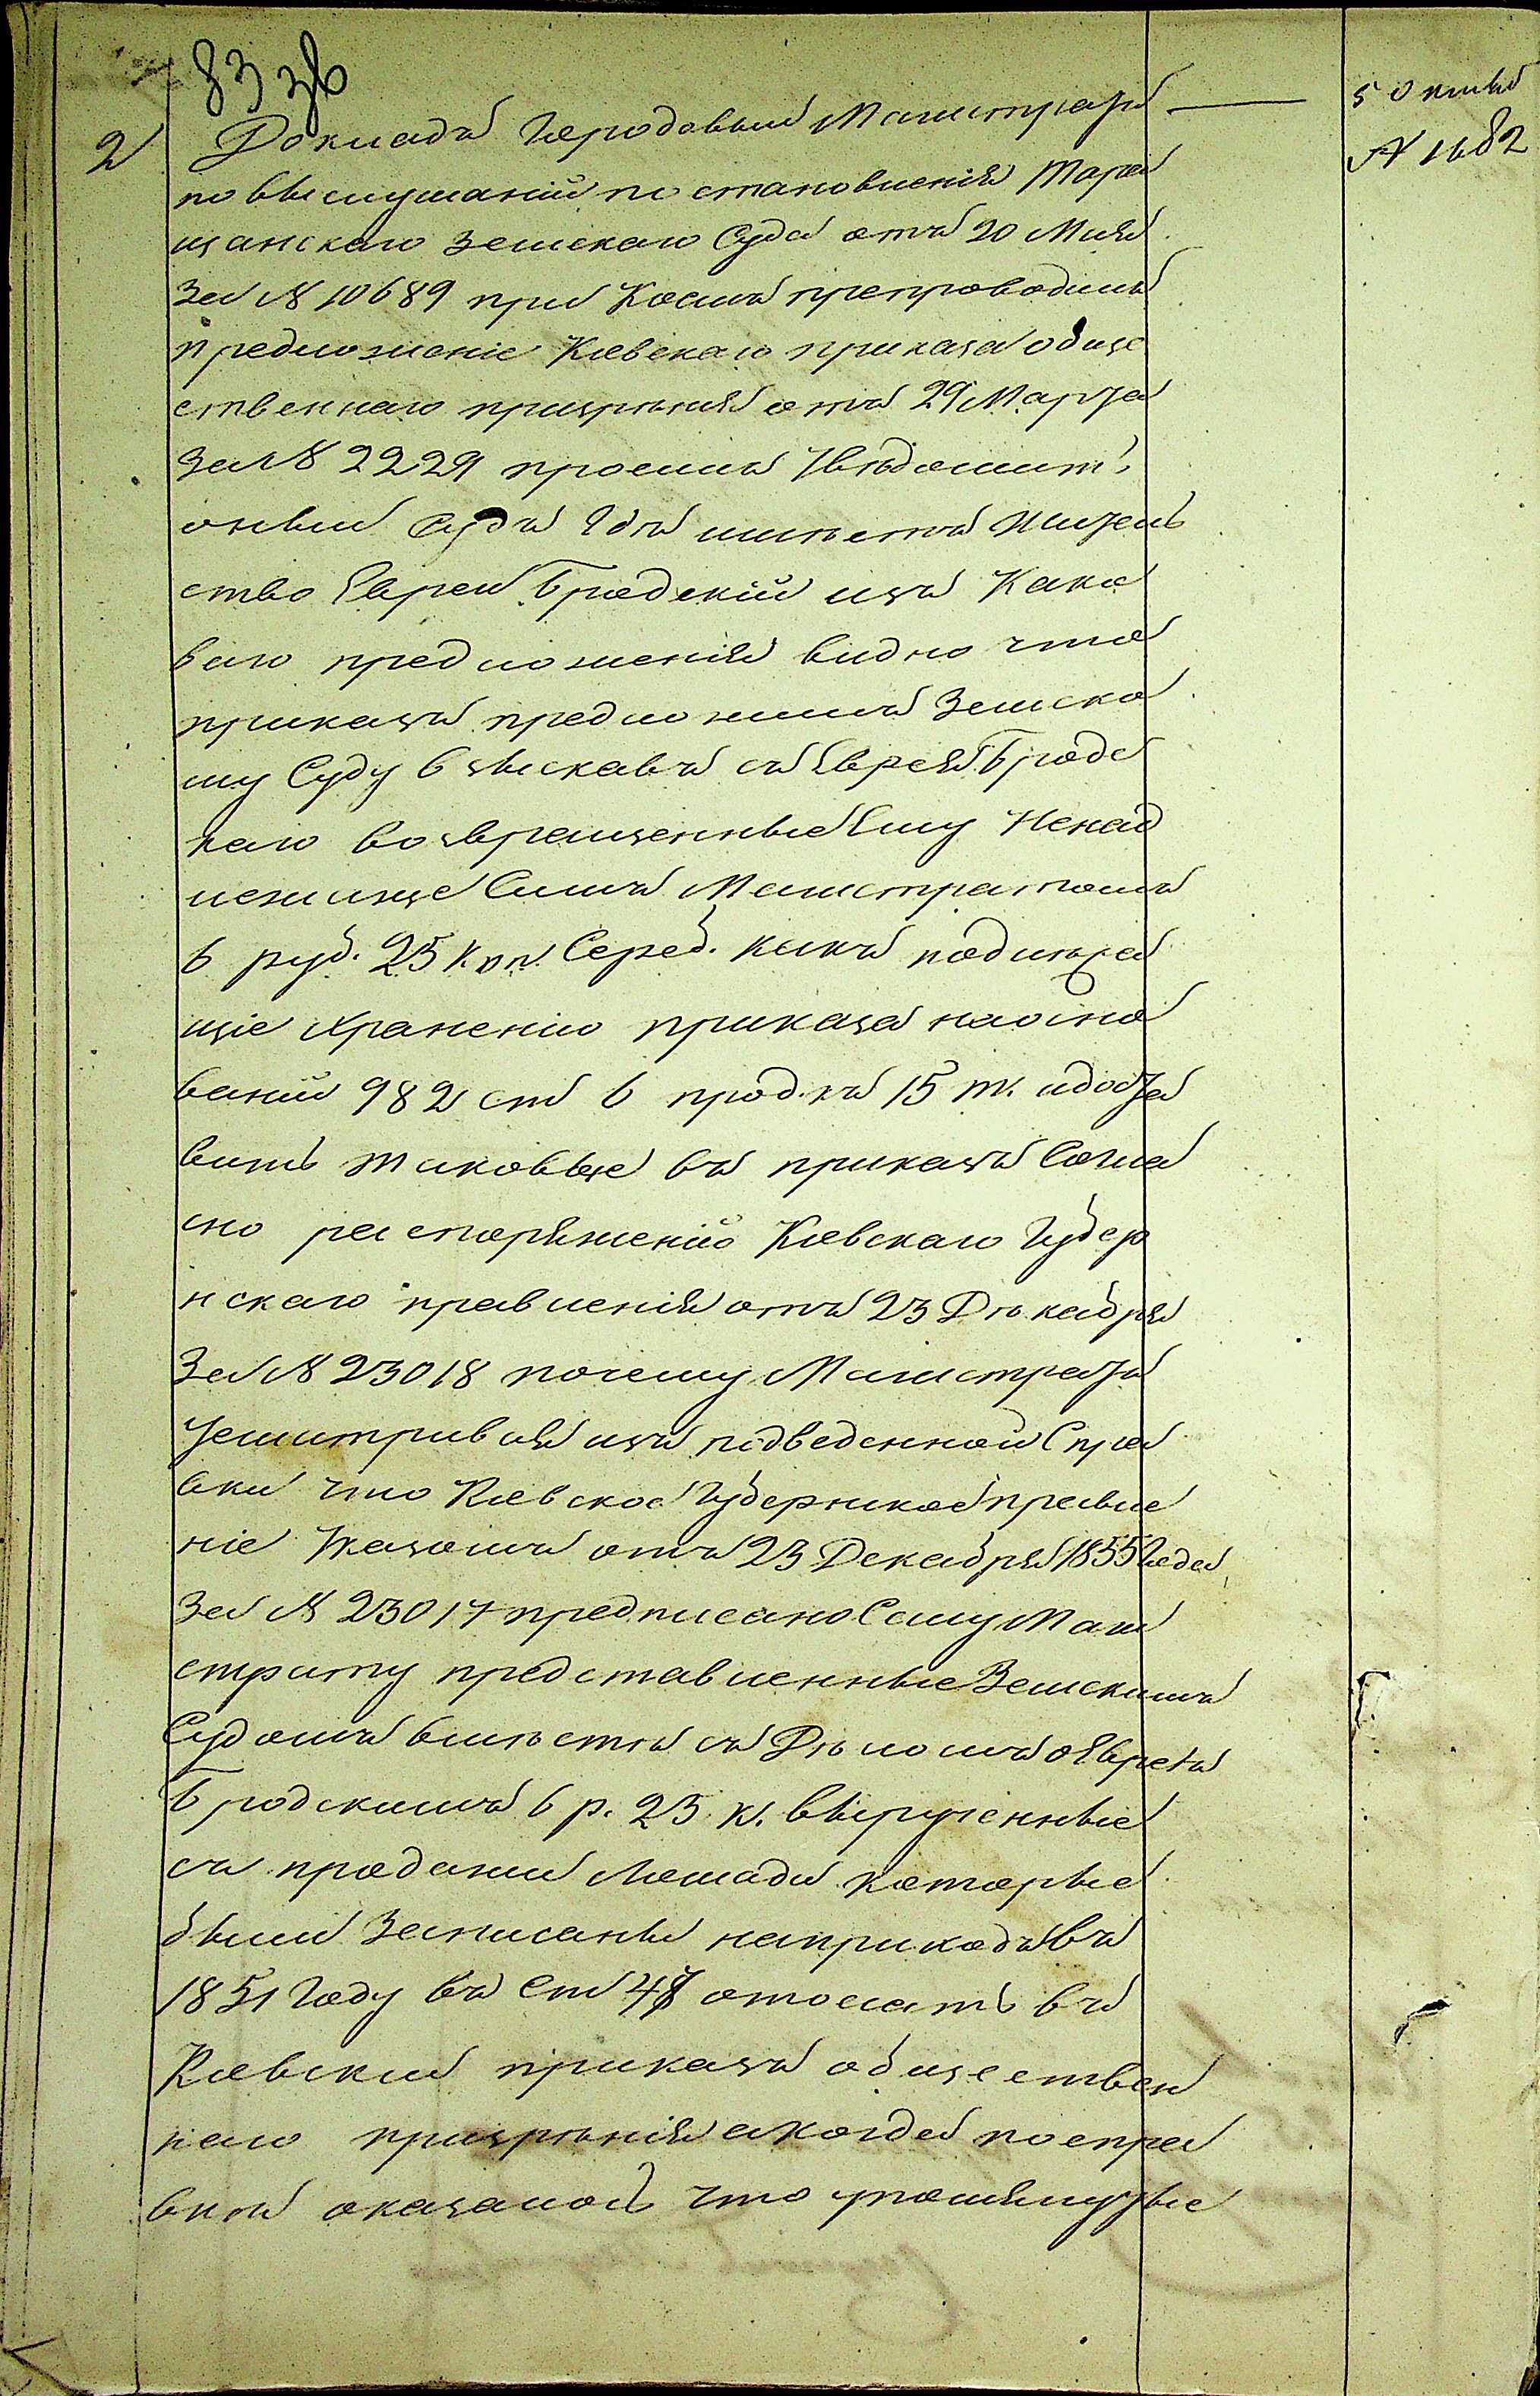 83 зв
2
Докладъ Городовый Магистратъ
5 Октяб
№ 1682
по выслушаніи постановленія Тара
щанскаго Земскаго Суда отъ 20 Мая
За № 10689 при коемъ препроводилъ
предложеніе Кіевскаго приказа обще
ственнаго призрѣнія отъ 29 Марта
За № 2229 просилъ Увѣдомить
оный Судъ Гдѣ имѣетъ Житель
ство Еврей Бродскій изъ Како
ваго предложенія видно что
приказъ предложилъ Земско
му Суду взыскавъ съ Еврея Бродс
каго возвращенные Ему Ненад
лежаще Симъ Магистратомъ
6 руб. 25 коп. Сереб. какъ подлежа
щіе храненію приказа на осно
ваніи 982 ст 6 прод. къ 15 т. и доста
вить таковые въ приказъ Согла
сно распоряженію Кіевскаго Губер
нскаго правленія отъ 23 Дѣкабря
За № 23018 почему Магистратъ
Усматривая изъ подведенной Спра
вки что Кіевское Губернское правле
ніе Указомъ отъ 23 Декабря 1855 Года
За № 23017 предписано Сему Маги
страту представленные Земскимъ
Судомъ вмѣстѣ съ Дѣломъ о Евреѣ
Бродскимъ 6 р. 25 к. вырученные
съ продажи Лошади которые
были Записаны на приходъ въ
1851 Году въ Ст 47 отослать въ
Кіевский приказъ обществен
наго призрѣнія а когда по спра
вкѣ оказалось что упомянутые